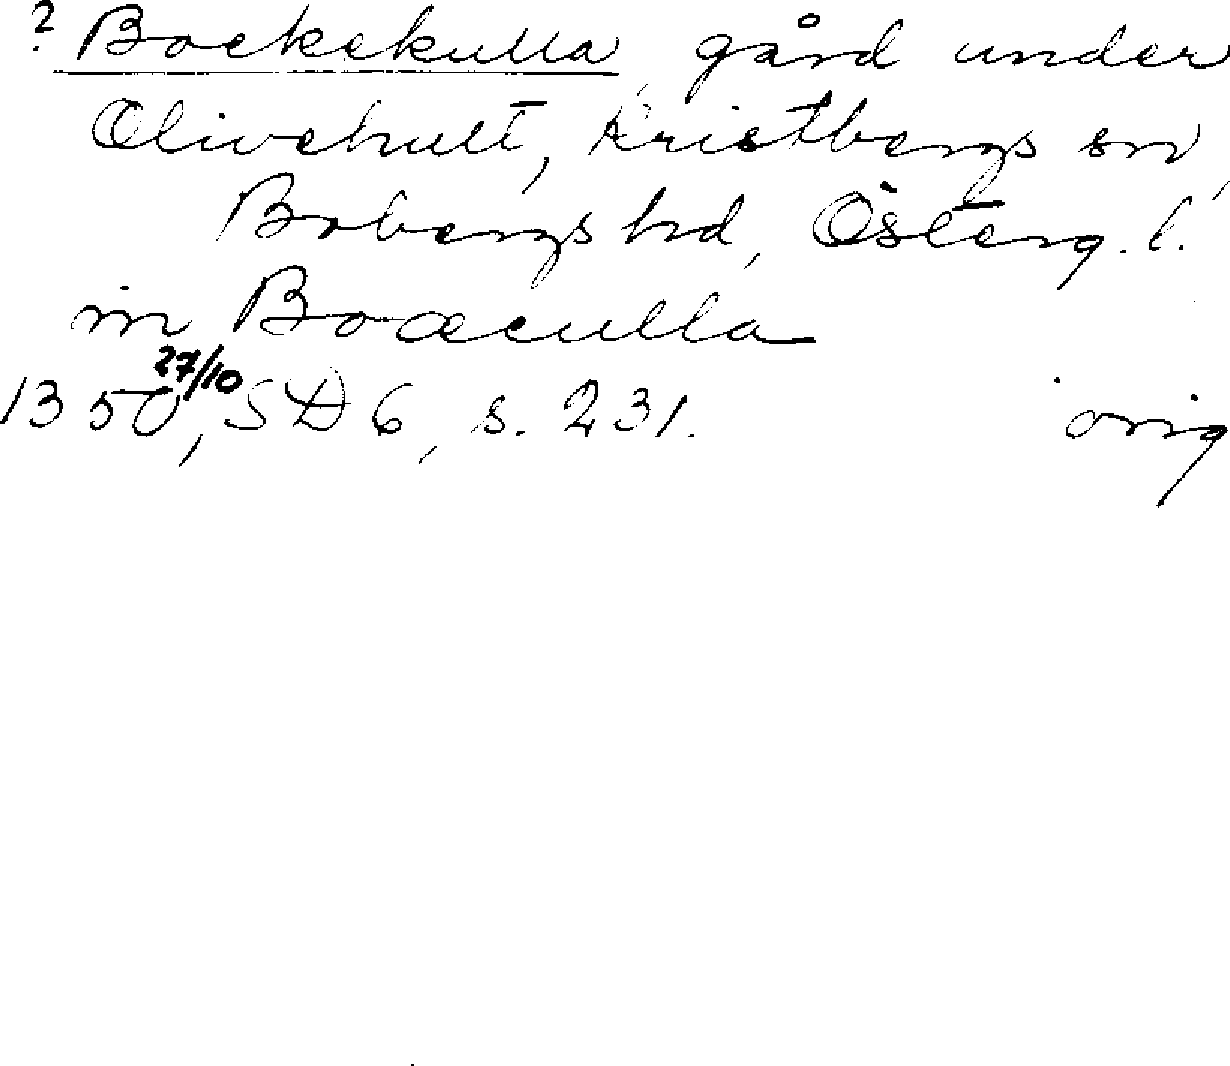 ? Bockekulla, gård under
Olivehult, Kristbergs sn,
Bobergs hd, Österg. l.
in Boæculla
1350 27/10, SD 6, s. 231. orig